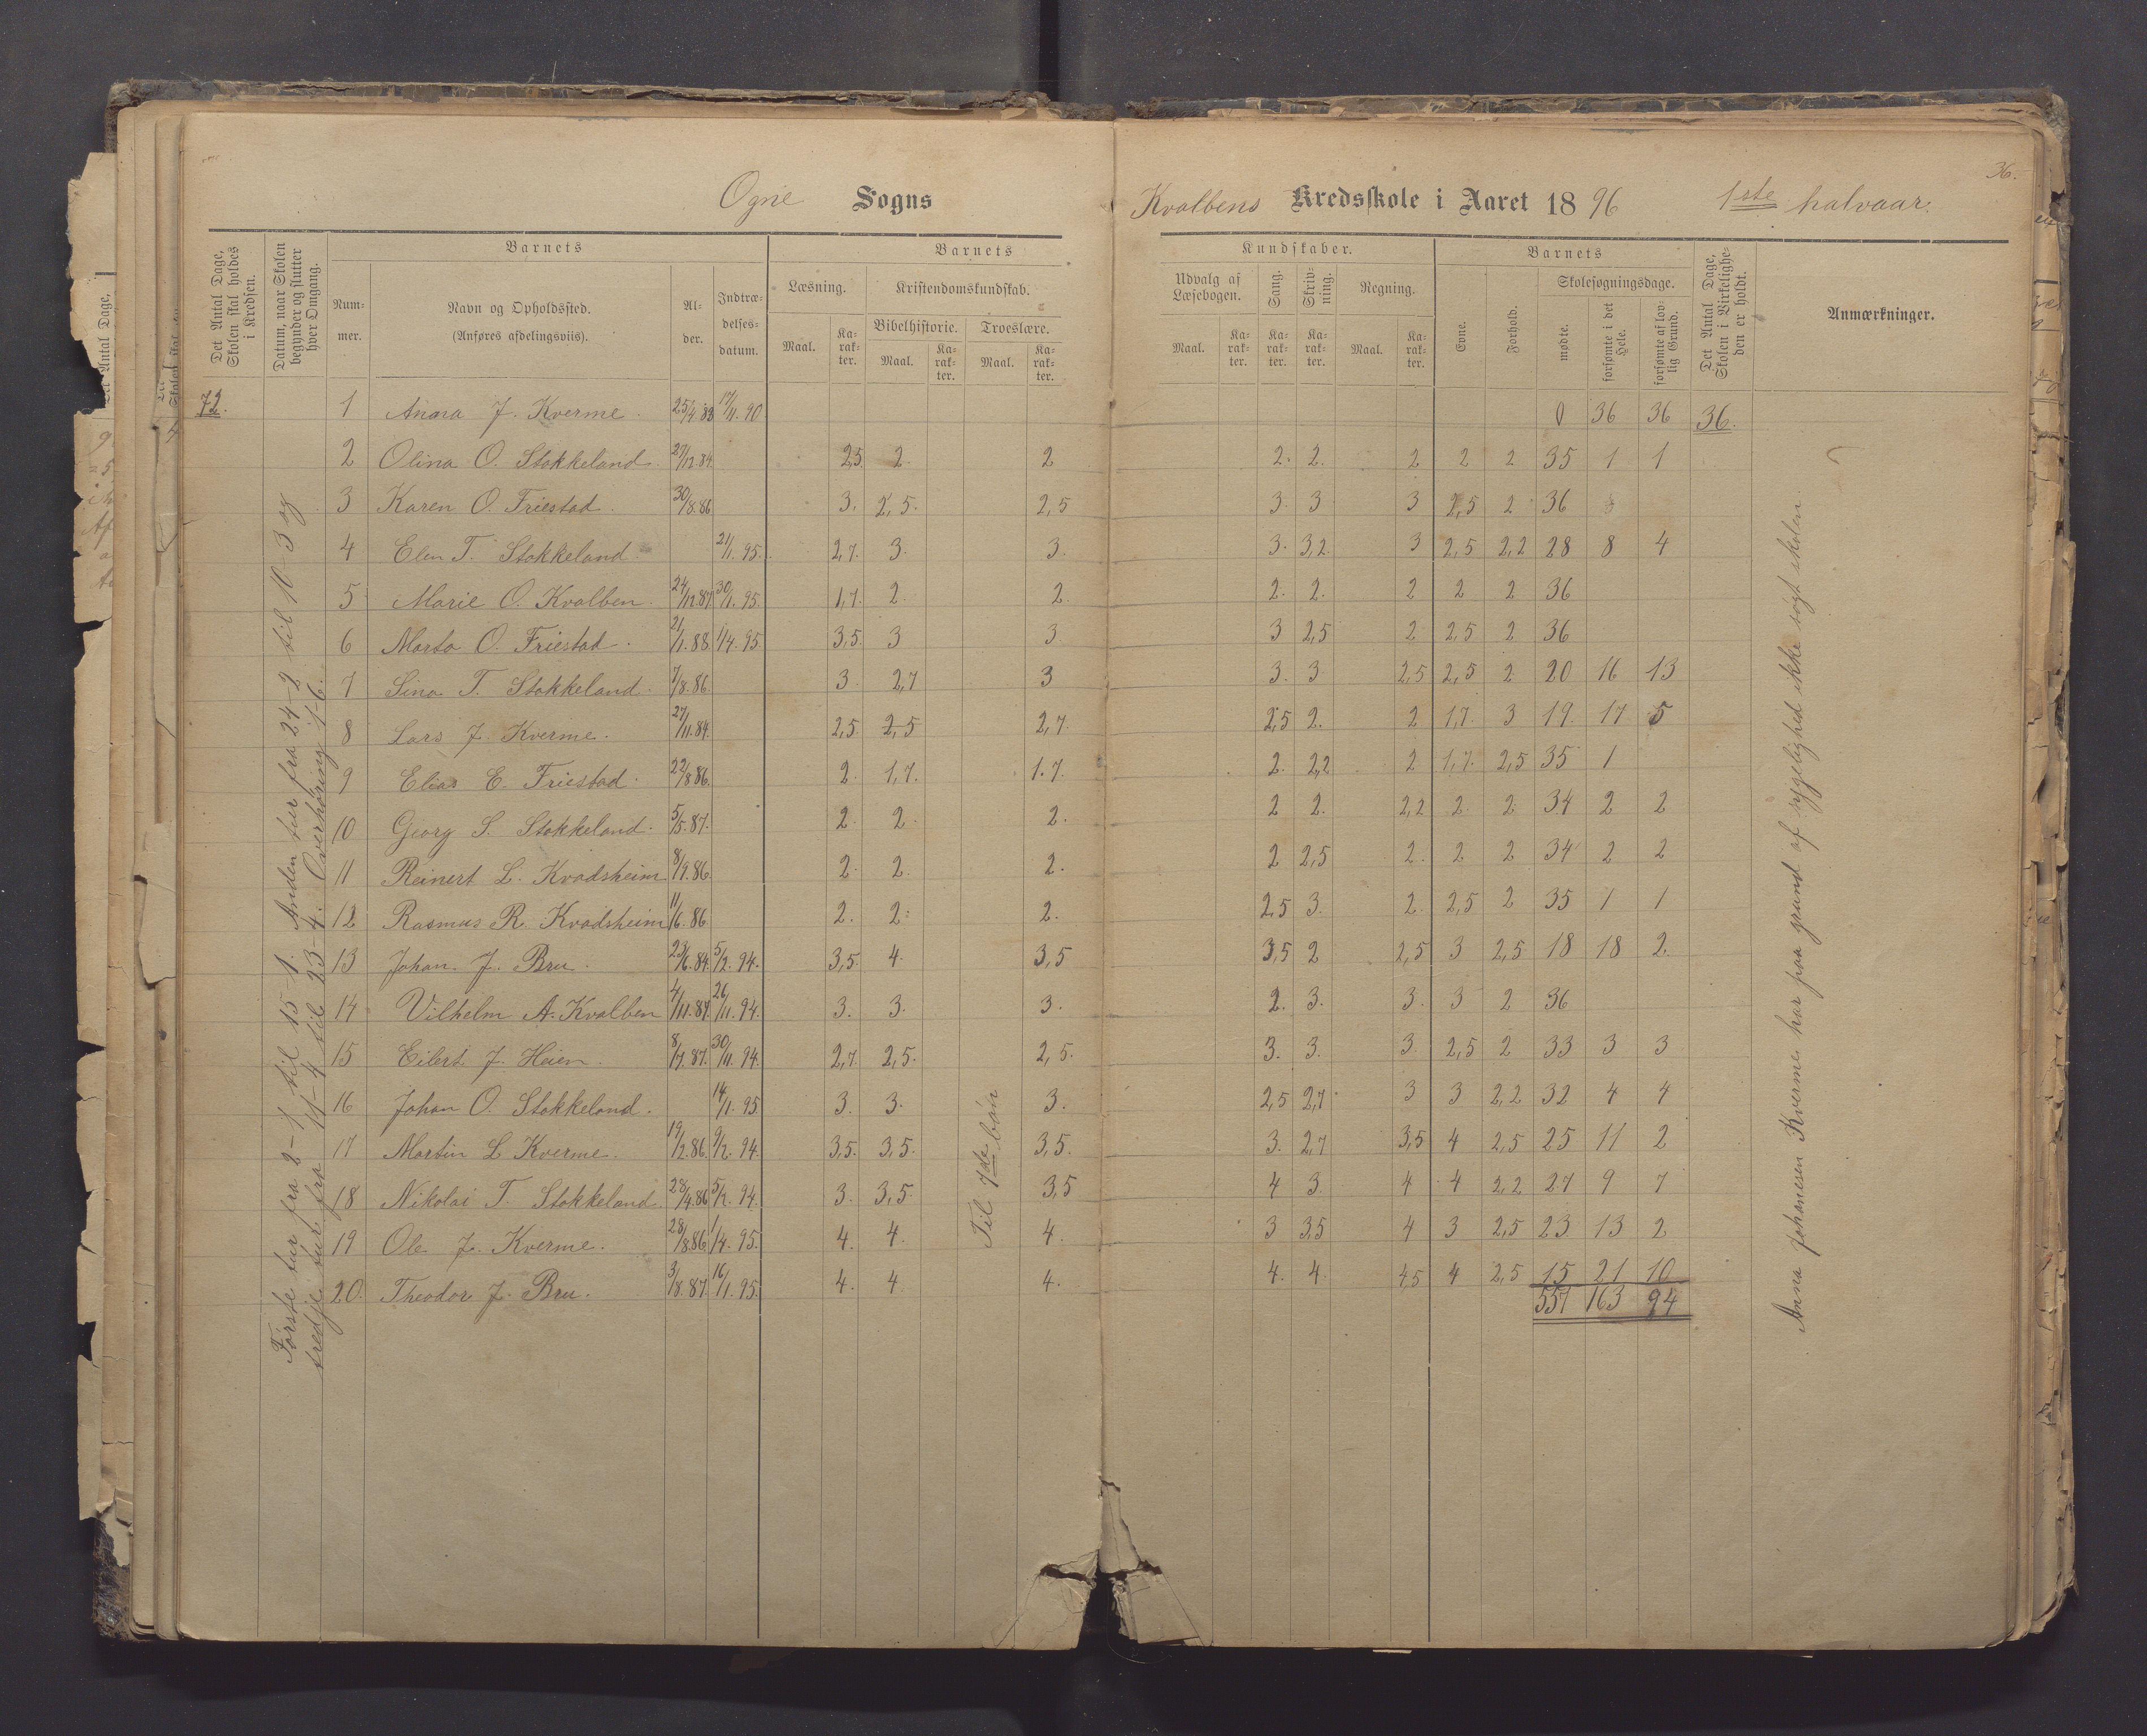 36.
Ogne Sogns Kvalbens Kredsskole i Aaret 1896 1ste halvaar.
Det Antal Dage, Skolen skal holdes i Kredsen.
Datum, naar Skolen begynder og slutter hver Omgang.
Barnets
Nummer.
Navn og Opholdssted. (Anføres afdelingsviis).
Alder.
Indtrædelsesdatum.
Barnets Kundskaber.
Læsning. Maal. Karakter.
Kristendomskundskab.
Bibelhistorie. Maal. Karakter.
Troeslære. Maal. Karakter.
Udvalg af Læsebogen. Maal. Karakter.
Sang. Karakter.
Skrivning. Karakter.
Regning. Maal. Karakter.
Barnets
Evne.
Forhold.
Skolesøgningsdage.
mødte.
forsømte i det Hele.
forsømte af lovlig Grund.
Det Antal Dage, Skolen i Virkeligheden er holdt.
Anmærkninger.
72. 1 Anna J. Kverme. 25/4 82 17/11. 90 0 36 36 36.
2 Olina O. Stokkeland. 27/12.84. 2,5. 2. 2 2. 2. 2 2 2 35 1 1
3 Karen O. Friestad. 30/8.86 3. 2,5. 2,5 3. 3 3 2,5 2 36
4 Elen T. Stokkeland. 21/1. 95. 2,7. 3. 3. 3. 3,2. 3 2,5 2,2 28 8 4
5 Marie O. Kvalben. 24/12.87. 30/1. 95. 1,7. 2. 2. 2. 2. 2 2 2 36
6 Marta O. Friestad. 21/1. 88. 1/4. 95 3,5. 3 3. 3 2,5 2 2,5 2 36
7 Sina T. Stokkeland. 7/8. 86. 3. 2,7 3 3. 3 2,5 2,5 2 20 16 13
8 Lars J. Kverme. 27/11.84. 2,5. 2,5 2,7. 2,5 2. 2 1,7. 3 19. 17 5
9 Elias E. Friestad. 22/8 86. 2. 1,7. 1.7. 2. 2,2 2 1,7. 2,5 35 1
10 Georg S. Stokkeland. 5/5.87. 2. 2. 2. 2 2. 2,2 2. 2 34 2 2
11 Reinert L. Kvadsheim 8/9.86. 2. 2. 2. 2 2,5 2. 2 2 34 2 2
12 Rasmus R. Kvadsheim 11/6. 86 2. 2. 2. 2,5 3. 2. 2,5 2 35 1 1
13 Johan. J. Bru. 23/6.84. 5/2. 94. 3,5. 4. 3,5 3,5 2 2,5 3 2,5 18 18 2.
14 Vilhelm A. Kvalben 4/11.87. 26/11. 94. 3. 3. 3. 2. 3. 3. 3 2 36
15 Eilert J. Heien. 8/7. 87. 30/11. 94. 2,7. 2,5. 2,5. 3. 3. 3. 2,5 2 33 3 3
16 Johan O. Stokkeland. 14/1. 95. 3. 3. 3. 2,5 2,7 3 3 2,2 32 4 4
17 Martin L Kverme. 19/2.86. 9/2. 94. 3,5. 3,5. 3,5. 3. 2,7 3,5 4 2,5 25 11 2
18 Nikolai T. Stokkeland. 28/4.86 5/2. 94. 3. 3,5. 3,5 4 3. 4 4 2,2 27 9 7
19 Ole J. Kverme. 28/8.86 1/4. 95. 4. 4. 4. 3 3,5 4 3 2,5 23 13 2
20. Theodor J. Bru. 3/8. 87. 16/1. 95. 4. 4. 4. 4. 4. 4,5 4 2,5 15 21 10
557 163 94
Første tur fra 2-1 til 15-1. Anden tur fra 24-2 til 10-3 og
tredje tur fra 11-4 til 23-4. Overhøring 1-6.
Til 7de bøn
Anna Johanesen Kverme har paa grund af sygelighed ikke søgt skolen.